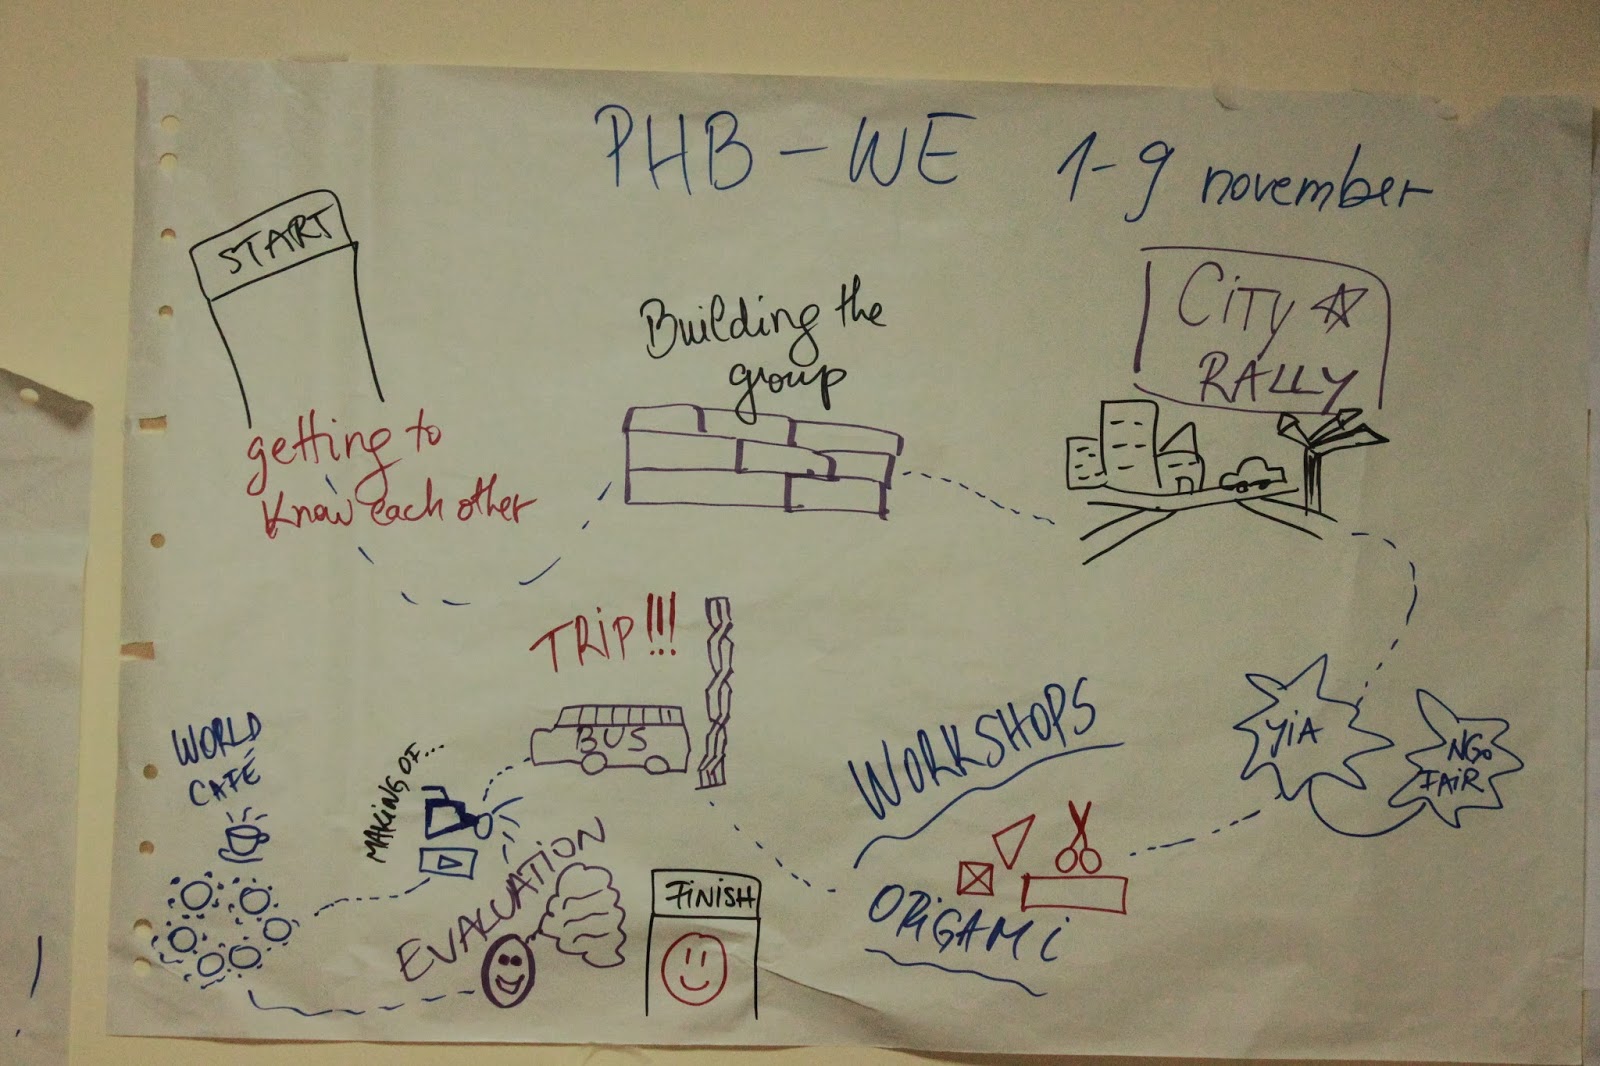 PHB - WE 1-9 november
START
getting to
know each other
Building the
group
CiTy
RALLY
YiA
NGO
FAiR
WORKSHOPS
ORiGAMi
TRiP!!!
BUS
MAKiNG OF...
WORLD
CAFÉ
EVALUATION
FiNiSH